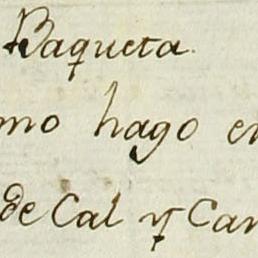 Baqueta.
mo hago en
de Cal y Car